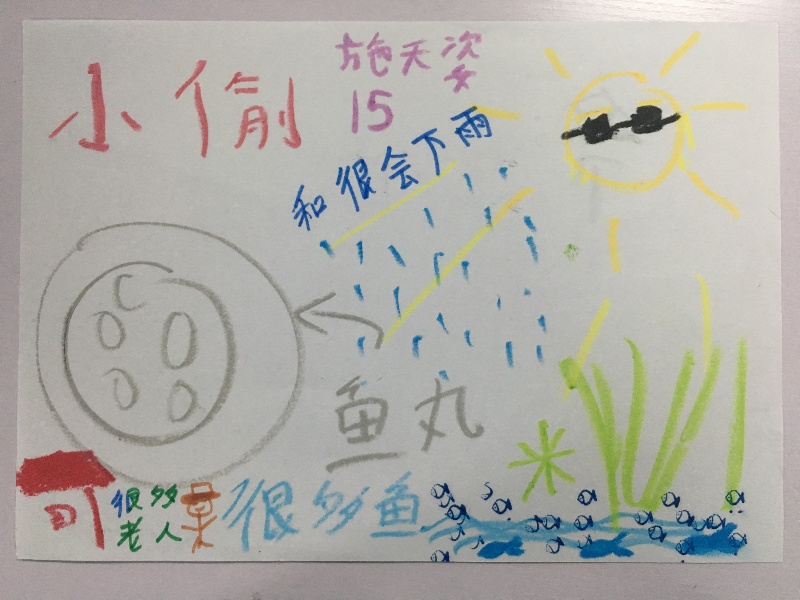 小偷
施天姿
15
和很会下雨
鱼丸
很多
老人
很多鱼